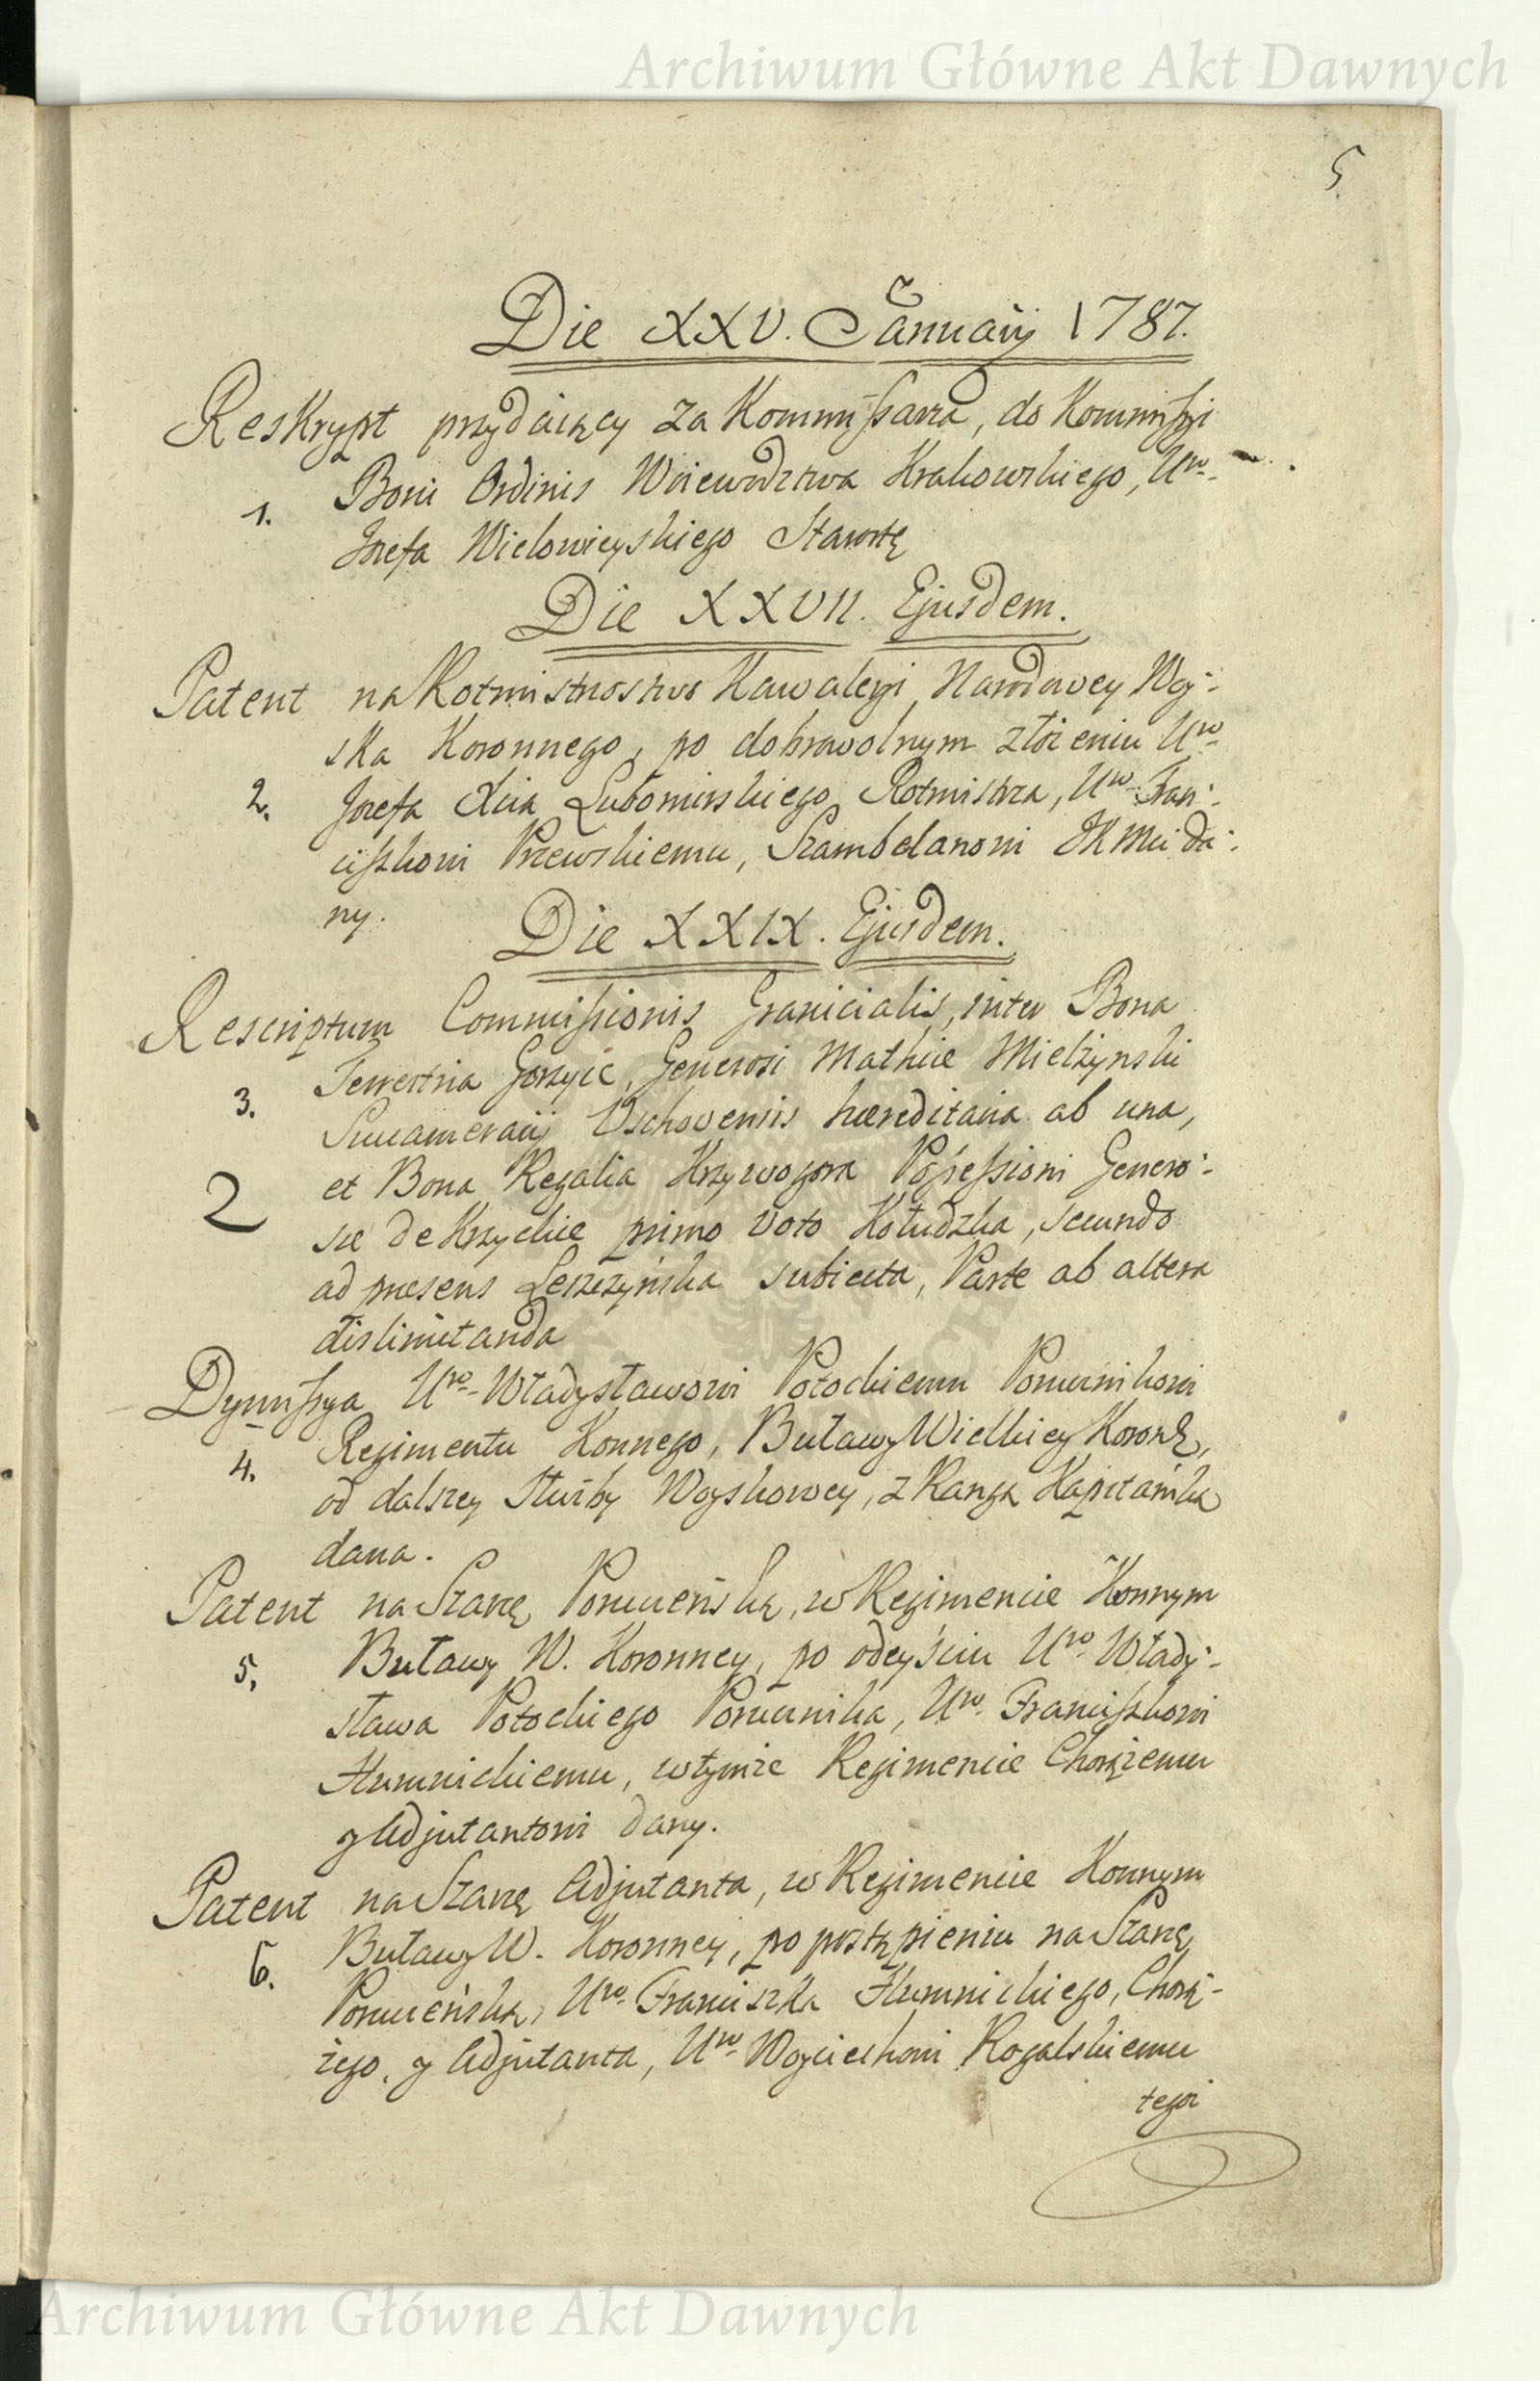 Archiwum Główne Akt Dawnych
5
Die XXV. Januarij 1787.
Reskrypt przydaiący za Kommissarza, do Kommissyi
1. Boni Ordinis Woiewodztwa Krakowskiego, Uro.
Jozefa Wielowieyskiego Starostę
Die XXVII. Ejusdem.
Patent na Rotmistrzostwo Kawaleryi Narodowey Woy-
ska Koronnego, po dobrowolnym złożeniu Uro
2. Jozefa Xcia Lubomirskiego Rotmistrza, Uro Fran-
ciszkowi Rzewskiemu, Szambelanowi JKMci da-
ny.
Die XXIX. Ejusdem.
Rescriptum Commissionis Granicialis, inter Bona
3. Terrestria Gorzyce, Generosi Mathiæ Mielzynski
Succamerarij Vschovensis hæreditaria ab una,
2
et Bona Regalia Krzywogora Possessioni Genero-
sæ de Krzyckie primo voto Kołudzka, secundo
ad præsens Leszczyńska subiecta, Parte ab altera
dislimitanda
Dymissya Uro. Władysławowi Potockiemu Porucznikowi
4. Regimentu Konnego, Buławy Wielkiey Koronn,
od dalszey Służby Woyskowey, z Rangą Kapitańską
dana.
Patent na Szarżę Poruczeńską, w Regimencie Konnym
5. Buławy W. Koronney, po odeyściu Uro Włady-
sława Potockiego Porucznika, Uro. Franciszkowi
Humnickiemu, wtymże Regimencie Chorążemu
y Adjutantowi dany.
Patent na Szarżę Adjutanta, w Regimencie Konnym
6. Buławy W. Koronney, po postąpieniu na Szarżę
Poruczeńską, Uro. Franciszka Humnickiego, Chorą-
żego, y Adjutanta, Uro Woyciechowi Rogalskiemu
tegoż
Archiwum Główne Akt Dawnych